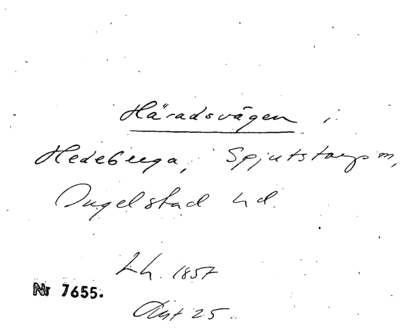 Häradsvägen i
Hedeberga, Spjutstorp sn,
Ingelstad hd.
Lh. 1857
Nr 7655.
Akt 25.